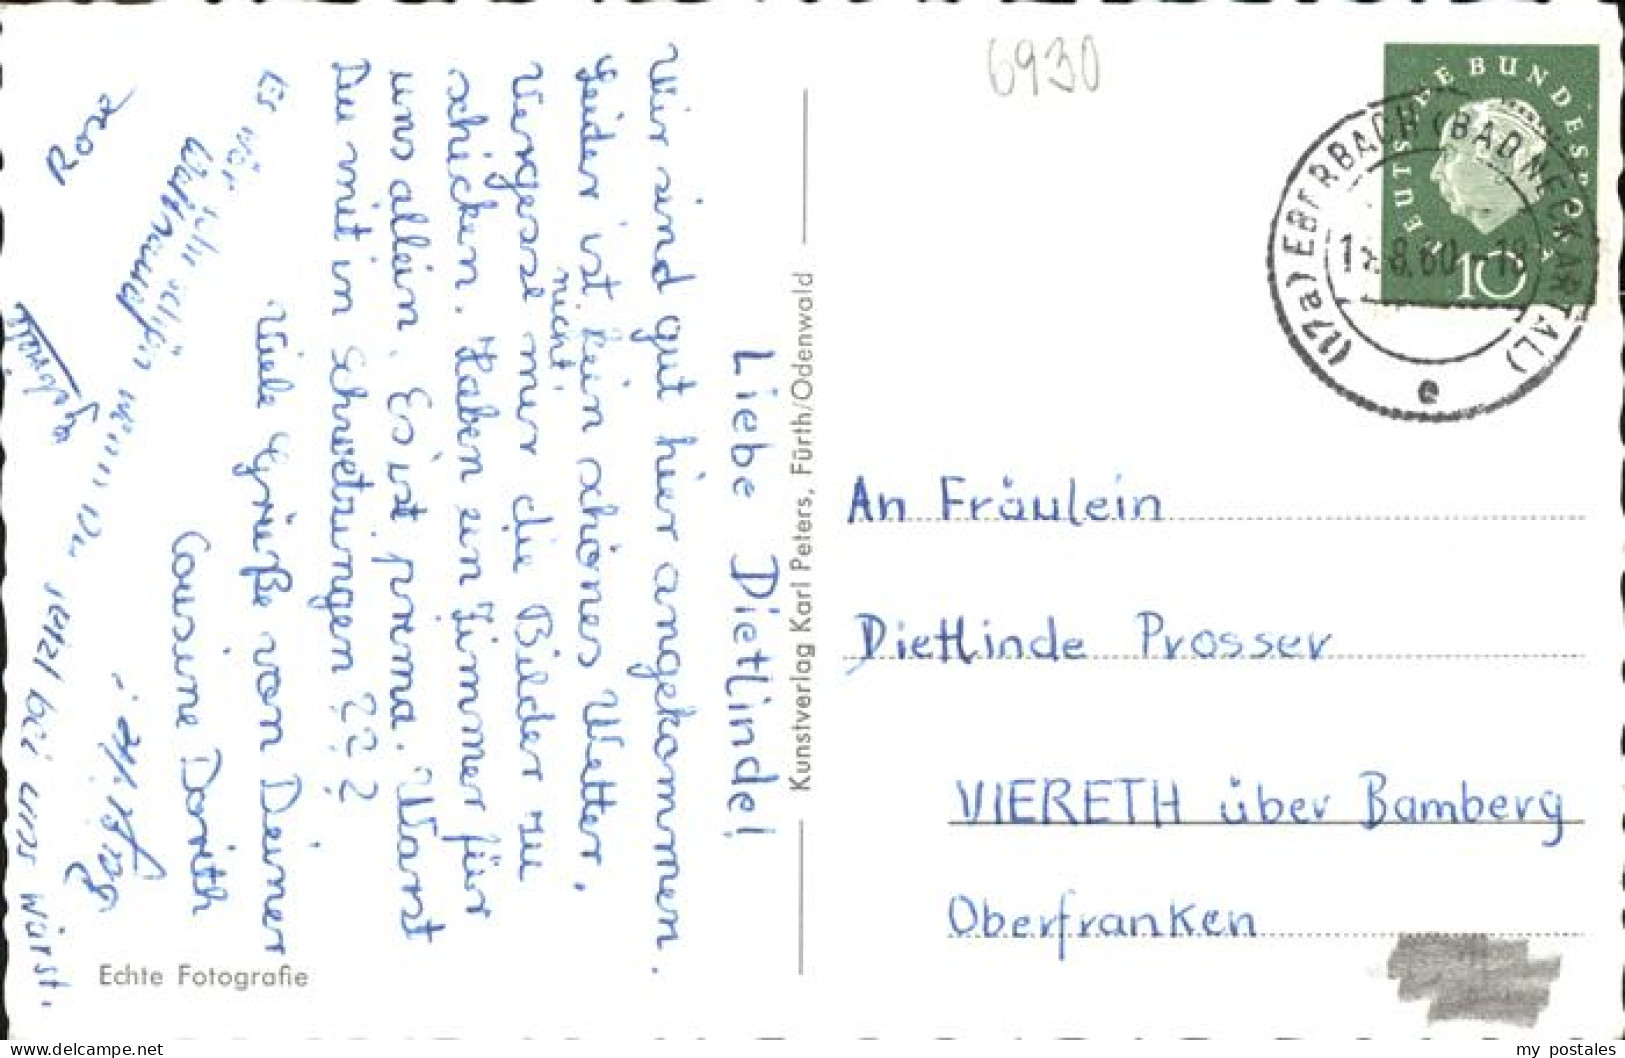 Liebe Dietlinde!
Wir sind gut hier angekommen.
Leider ist kein schönes Wetter,
Vergesse mir die Bilder zu
nicht
schicken. Haben ein Zimmer für
uns allein. Es ist prima. Warst
Du mit in Schwetzingen ? ? ?
Viele Grüße von Deiner
Cousine Dorith
Es wär sehr schön wenn Du jetzt bei uns wärst.
Waltraud
Rose
Echte Fotografie
Kunstverlag Karl Peters, Fürth/Odenwald
6930
DEUTSCHE BUNDESPOST
10
(17a) EBERBACH (BAD NECKARTAL)
.8.60 - 18
e
An Fräulein
Dietlinde Prosser
VIERETH über Bamberg
Oberfranken
my postales